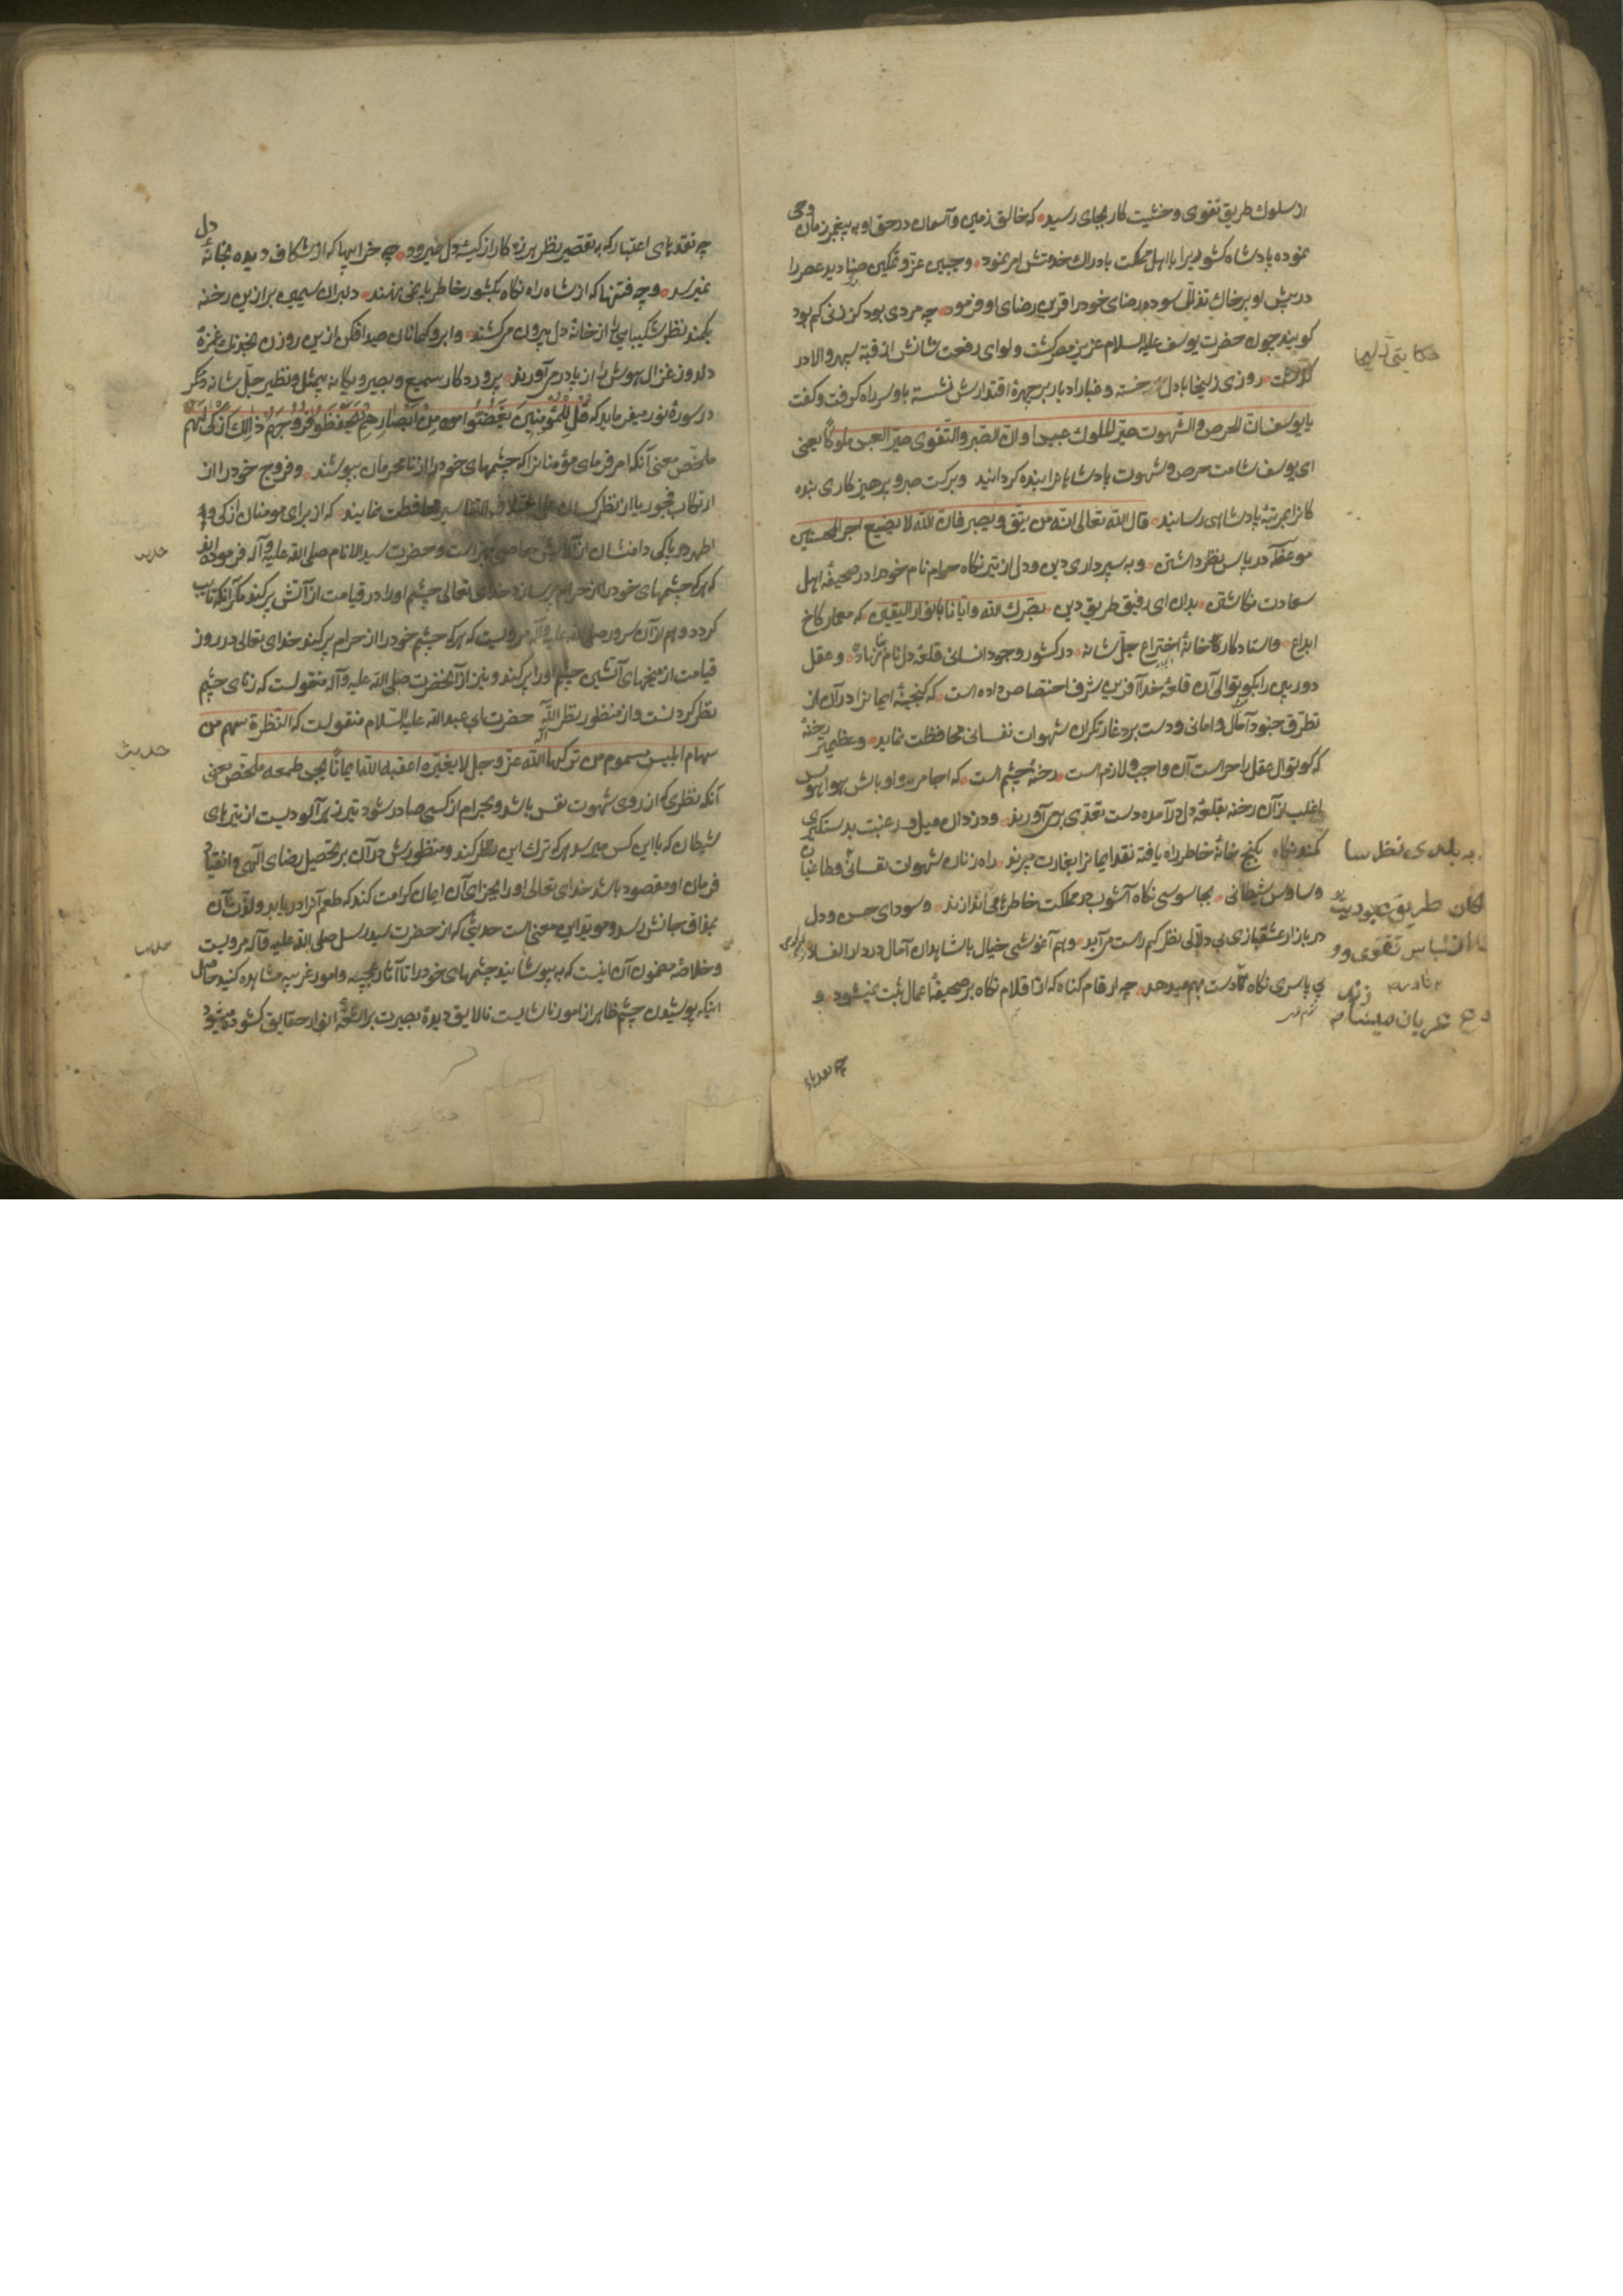 از سلوك طریق تقوی و خشیت کار بجای رسید که خالق زمین و آسمان در حق او به پیغمبر زمان وحی
نموده پادشاه کشور را با اهل مملکت بادراك خدمتش امر نمود و جبین عز و تمکین صنادید عصر را
در پیش او بر خاك تذلل سوده رضای خود را قرین رضای او فرمود چه مردی بود کز زنی کم بود
حکایتی زلیخا
کویند چون حضرت یوسف علیه السلام عزیز مصر کشت و لوای رفعت شانش از قبه سپهر والا در
کذشت روزی زلیخا با دل خسته و غبار ادبار بر چهرهٔ اقتدارش نشسته باو سر راه کرفت و کفت
یا یوسف ان الحرص و الشهوت صیر الملوك عبیدا و ان الصبر و التقوی صیر العبید ملوکاً یعنی
ای یوسف شامت حرص و شهوت پادشاهانرا بنده کردانید و برکت صبر و پرهیزکاری بنده
کانرا بمرتبهٔ پادشاهی رسانید قال الله تعالی انه من یتق و یصبر فان الله لا یضیع اجر المحسنین
موعظه در پاس نظر داشتن و به سپرداری دین و دل از تیر نکاه حرام نام خود را در صحیفهٔ اهل
سعادت نکاشتن بدان ای رفیق طریق دین بصرك الله و ایانا بانوار الیقین که معمار کاخ
ابداع و استاد کار کارخانهٔ اختراع جل شانه در کشور وجود انسانی قلعهٔ دل نام بنا نهاده و عقل
دوربین را بکوتوالی آن قلعهٔ خدا آفرین شرف اختصاص داده است که کنجینهٔ ایمانرا در آن از
تطرق جنود آمال و امانی و دست برد غارتکران شهوات نفسانی محافظت نماید و عظیم تر رخنهٔ
که کوتوال عقل را حراست آن واجب و لازم است رخنهٔ چشم است که اجامره و اوباش هوا و هوس
اغلب از آن رخنه بقلعهٔ دل در آمده دست تعدی بر می آورند و دزدان میل و رغبت بدستکیری
کمند نکاه بکنج خانهٔ خاطر راه یافته نقد ایمانرا بغارت میبرند راه زنان شهوات نفسانی و طاغیان
وساوس شیطانی بجاسوسی نکاه آشوب در مملکت خاطرها می اندازند و سودای حسن و دل
در بازار عشقبازی بی دلالی نظر کم راست می آید و هم آغوشی خیال با شاهدان آمال در دار الفساد
بی پاسری نکاه کم دست بهم میدهد چه ارقام کناه که از اقلام نکاه بر صحیفهٔ اعمال ثبت نمیشود و
چه نقدهای
چه نقدهای اعتبار که به تقصیر نظر هرزه کار از کیسهٔ دل نمیرود چه خرابیها که از شکاف دیده بخانهٔ دل
نمیرسد و چه فتنها که از شاه راه نکاه بکشور خاطر پا نمی نهند دلبران سیمین بر ازین رخنه
بکمند نظر شکیبایی را از خانهٔ دل بیرون میکشند و ابرو کمانان صید افکن ازین روزن بخدنك غمزهٔ
دلدوز غزال هوش را از پا در می آورند پروردکار سمیع و بصیر و یکانه بیمثل و نظیر جل شانه دیکر
در سورهٔ نور میفرماید که قُل لِلمُؤمِنینَ یَغُضُّوا مِن اَبصارِهِم وَیَحفَظُوا فُرُوجَهُم ذٰلِكَ اَزکی لَهُم
ملخص معنی آنکه امر فرمای مؤمنانرا که چشمهای خود را از نامحرمان بپوشند و فروج خود را از
ارتکاب فجور یا از نظر کسان علی اختلاف التفاسیر محافظت نمایند که از برای مومنان ازکی و
اطهر و پاکی دامنشان از آلایش معاصی بهتر است و حضرت سید الانام صلی الله علیه و آله فرموده اند
حدیث
که هر که چشمهای خود را از حرام پر سازد خدای تعالی چشم او را در قیامت از آتش پر کند مکر آنکه تایب
کردد و هم از آن سرور صلی الله علیه و آله مرویست که هر که چشم خود را از حرام پر کند خدای تعالی در روز
قیامت از میخهای آتشین چشم او را پر کند و نیز از آنحضرت صلی الله علیه و آله منقولست که زنای چشم
نظر کردنست و از منظور نظر اله حضرت ابی عبدالله علیه السلام منقولست که النظرة سهم من
حدیث
سهام ابلیس مسموم من ترکها لله عز و جل لا لغیره اعقبه الله ایماناً یجد طعمه ملخص معنی
آنکه نظری که از روی شهوت نفس باشد و بحرام از کسی صادر شود تیر زهر آلودیست از تیرهای
شیطان که باین کس میرسد هر که ترك این نظر کند و منظورش در آن بر تحصیل رضای الهی و انقیاد
فرمان او مقصود باشد خدای تعالی او را بجزای آن ایمان کرامت کند که طعم آنرا دریابد و لذت آن
بمذاق جانش رسد و موید این معنی است حدیثی که از حضرت سید رسل صلی الله علیه و آله مرویست
حدیث
و خلاصهٔ مضمون آن اینست که به پوشانید چشمهای خود را تا آثار عجیبه و امور غریبه مشاهده کنید حاصل
اینکه پوشیدن چشم ظاهر از امور ناشایست نالایق دیدهٔ بصیرت بر اشعهٔ انوار حقایق کشوده میشود